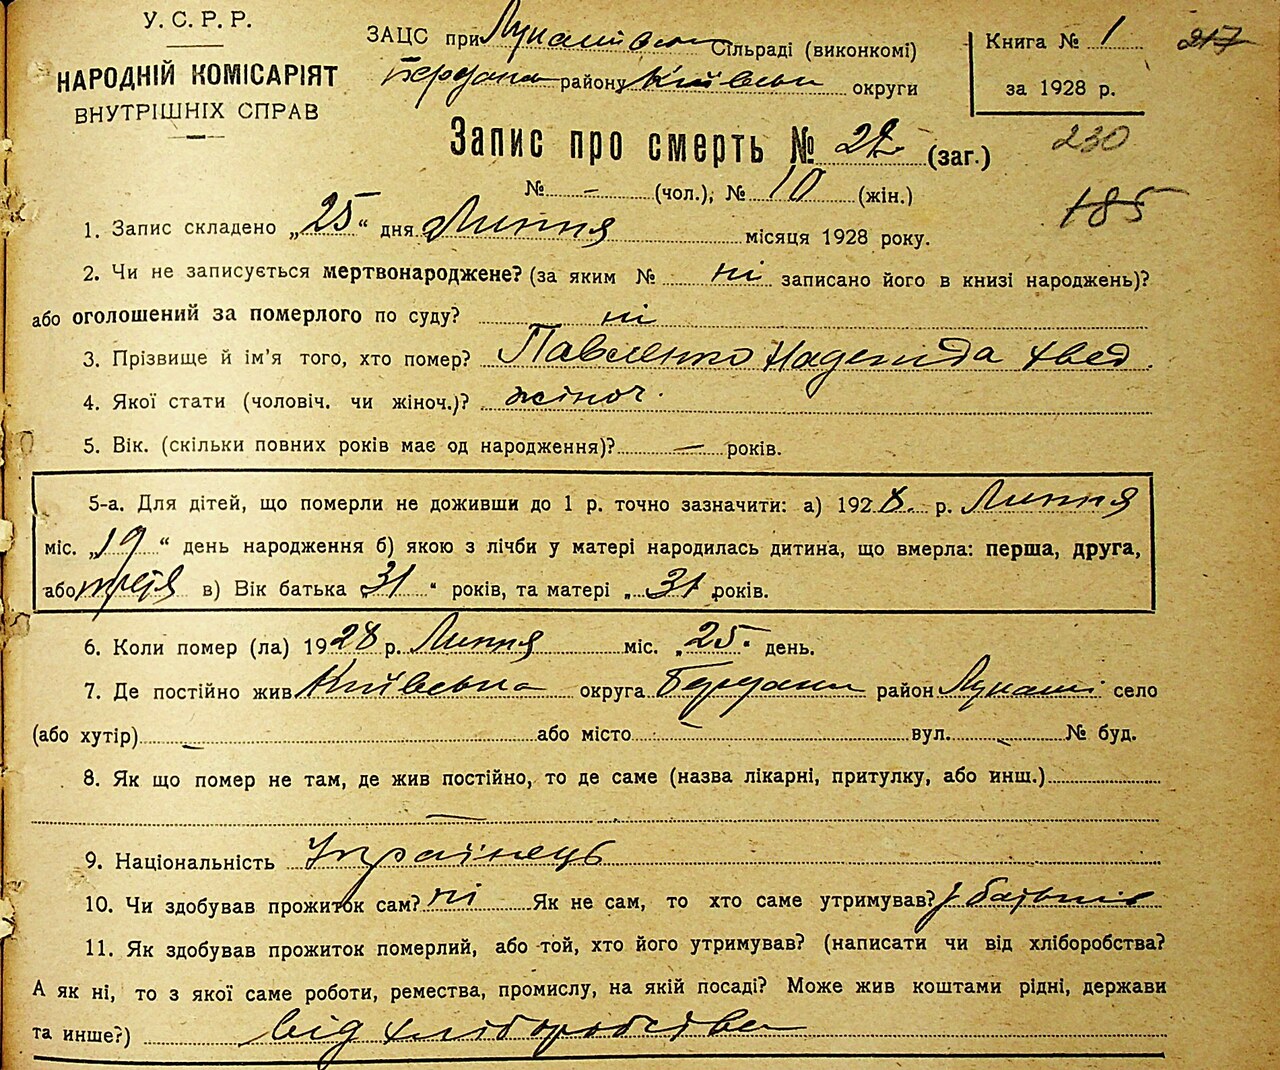 У. С. Р. Р.
НАРОДНІЙ КОМІСАРІЯТ
ВНУТРІШНІХ СПРАВ
ЗАЦС при Лукашівській Сільраді (виконкомі)
району Київськ округи
Книга № 1
за 1928 р.
217
230
185
Запис про смерть № 22 (заг.)
№ – (чол.); № 10 (жін.)
1. Запис складено „25“ дня Липня місяця 1928 року.
2. Чи не записується мертвонароджене? (за яким № ні записано його в книзі народжень)?
або оголошений за померлого по суду? ні
3. Прізвище й ім'я того, хто помер? Павленко Надежда Хвед.
4. Якої стати (чоловіч. чи жіноч.)? жіноч.
5. Вік. (скільки повних років має од народження)? — років.
5-а. Для дітей, що померли не доживши до 1 р. точно зазначити: а) 1928. р. Липня
міс. „19“ день народження б) якою з лічби у матері народилась дитина, що вмерла: перша, друга,
або третя в) Вік батька „31“ років, та матері „31 років.
6. Коли помер (ла) 1928 р. Липня міс. „25“ день.
7. Де постійно жив Київська округа район Лукаші село
(або хутір) – або місто – вул. – № буд.
8. Як що помер не там, де жив постійно, то де саме (назва лікарні, притулку, або инш.)
—
9. Національність Українець
10. Чи здобував прожиток сам? ні Як не сам, то хто саме утримував? батьків
11. Як здобував прожиток померлий, або той, хто його утримував? (написати чи від хліборобства?
А як ні, то з якої саме роботи, ремества, промислу, на якій посаді? Може жив коштами рідні, держави
та инше?) від хліборобства